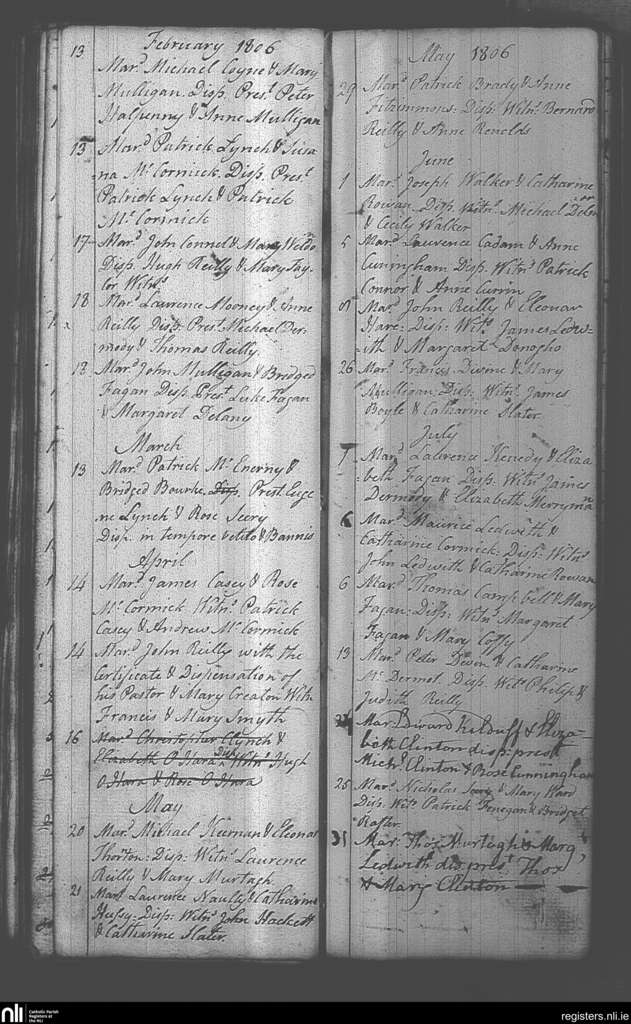 February 1806
13 Mard. Michael Coyne & Mary
Mulligan. Disp. Prest. Peter
Halpenny & Anne Mulligan
13 Mard. Patrick Lynch & Susa
na Mc Cormick. Disp. Prest.
Patrick Lynch & Patrick
Mc Cormick
17 Mard. John Connel & Mary
Disp. Hugh Reilly & Mary Tay
lor Witns.
18 Mard. Laurence Mooney & Anne
Reilly Disp. Prest. Michael Der-
mody & Thomas Reilly
18 Mard. John Mulligan & Bridged
Fagan Disp. Prest. Luke Fagan
& Margaret Delany
March
13 Mard. Patrick Mc Enerny &
Bridged Bourke. Disp. Prest. Euge
ne Lynch & Rose Seery
Disp. in tempore vetito & Bannis
April
14 Mard. James Casey & Rose
Mc Cormick Witns. Patrick
Casey & Andrew Mc Cormick
14 Mard. John Reilly with the
Certificate & Dispensation of
his Pastor & Mary Creaton With
Francis & Mary Smyth
16 Mard. Christopher Clynch &
Elizabeth O Hara Disp. Witns. Hugh
O Hara & Rose O Hara
May
20 Mard. Michael Keernan & Eleonor
Thornton: Disp: Witns. Laurence
Reilly & Mary Murtagh
21 Mard. Laurence Naully & Catharine
Husey: Disp: Witns. John Hackett
& Catharine Slater.
May 1806
29 Mard. Patrick Brady & Anne
Fitzimmons: Disp: Witns. Bernard
Reilly & Anne Renelds
June
1 Mard. Joseph Walker & Catharine
Rowan Disp. Witns. Michael
& Cecily Walker
5 Mard. Laurence Cadam & Anne
Cuningham Disp. Witns. Patrick
Connor & Anne Curin
Mard. John Reilly & Eleonor
Hare: Disp: Wits. James Ledw-
ith & Margaret Donogho
26 Mard. Francis Divine & Mary
Mulligan: Disp: Witns. James
Boyle & Catharine Slater
July
1 Mard. Laurence Kenedy & Eliza
beth Fagan Disp. Witns. James
Dermody & Elizabeth Merryman
6 Mard. Maurice Ledwith &
Catharine Cormick: Disp: Witns.
John Ledwith & Catharine Rowan
6 Mard. Thomas Campbell & Mary
Fagan: Disp: Witns. Margaret
Fagan & Mary Coffy
13 Mard. Peter Devon & Catharine
Mc Dermot. Disp. Wits. Philip &
Judith Reilly
Mar. Edward Kilduff & Eliza-
beth Clinton disp: prest.
Michl. Clinton & Rose Cunningham
25 Mard. Nicholas & Mary Ward
Disp. Wits. Patrick Finegan & Bridget
Rafter
31 Mar. Thos. Murtagh & Marg
Ledwith dis. prest. Thos
& Mary Clinton
nli Catholic Parish
Registers at
the NLI
registers.nli.ie